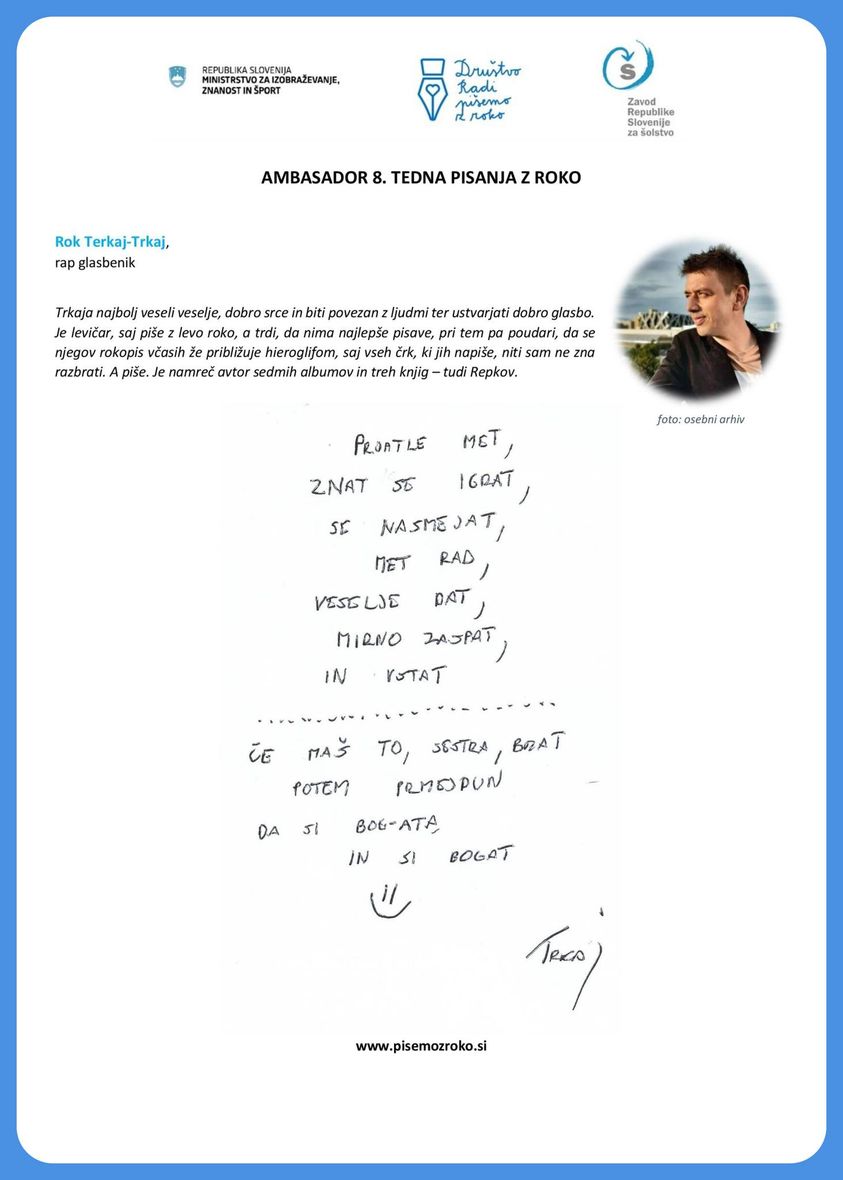 REPUBLIKA SLOVENIJA
MINISTRSTVO ZA IZOBRAŽEVANJE,
ZNANOST IN ŠPORT
Društvo
Radi
pišemo
z roko
Š
Zavod
Republike
Slovenije
za šolstvo
AMBASADOR 8. TEDNA PISANJA Z ROKO
Rok Terkaj-Trkaj,
rap glasbenik
Trkaja najbolj veseli veselje, dobro srce in biti povezan z ljudmi ter ustvarjati dobro glasbo.
Je levičar, saj piše z levo roko, a trdi, da nima najlepše pisave, pri tem pa poudari, da se
njegov rokopis včasih že približuje hieroglifom, saj vseh črk, ki jih napiše, niti sam ne zna
razbrati. A piše. Je namreč avtor sedmih albumov in treh knjig – tudi Repkov.
foto: osebni arhiv
PRJATLE MET,
ZNAT SE IGRAT,
SE NASMEJAT,
MET RAD,
VESELJE DAT,
MIRNO ZASPAT,
IN VSTAT
ČE MAŠ TO, SESTRA, BRAT
POTEM PRMEJDUN
DA SI BOG-ATA
IN SI BOGAT
Trkaj
www.pisemozroko.si